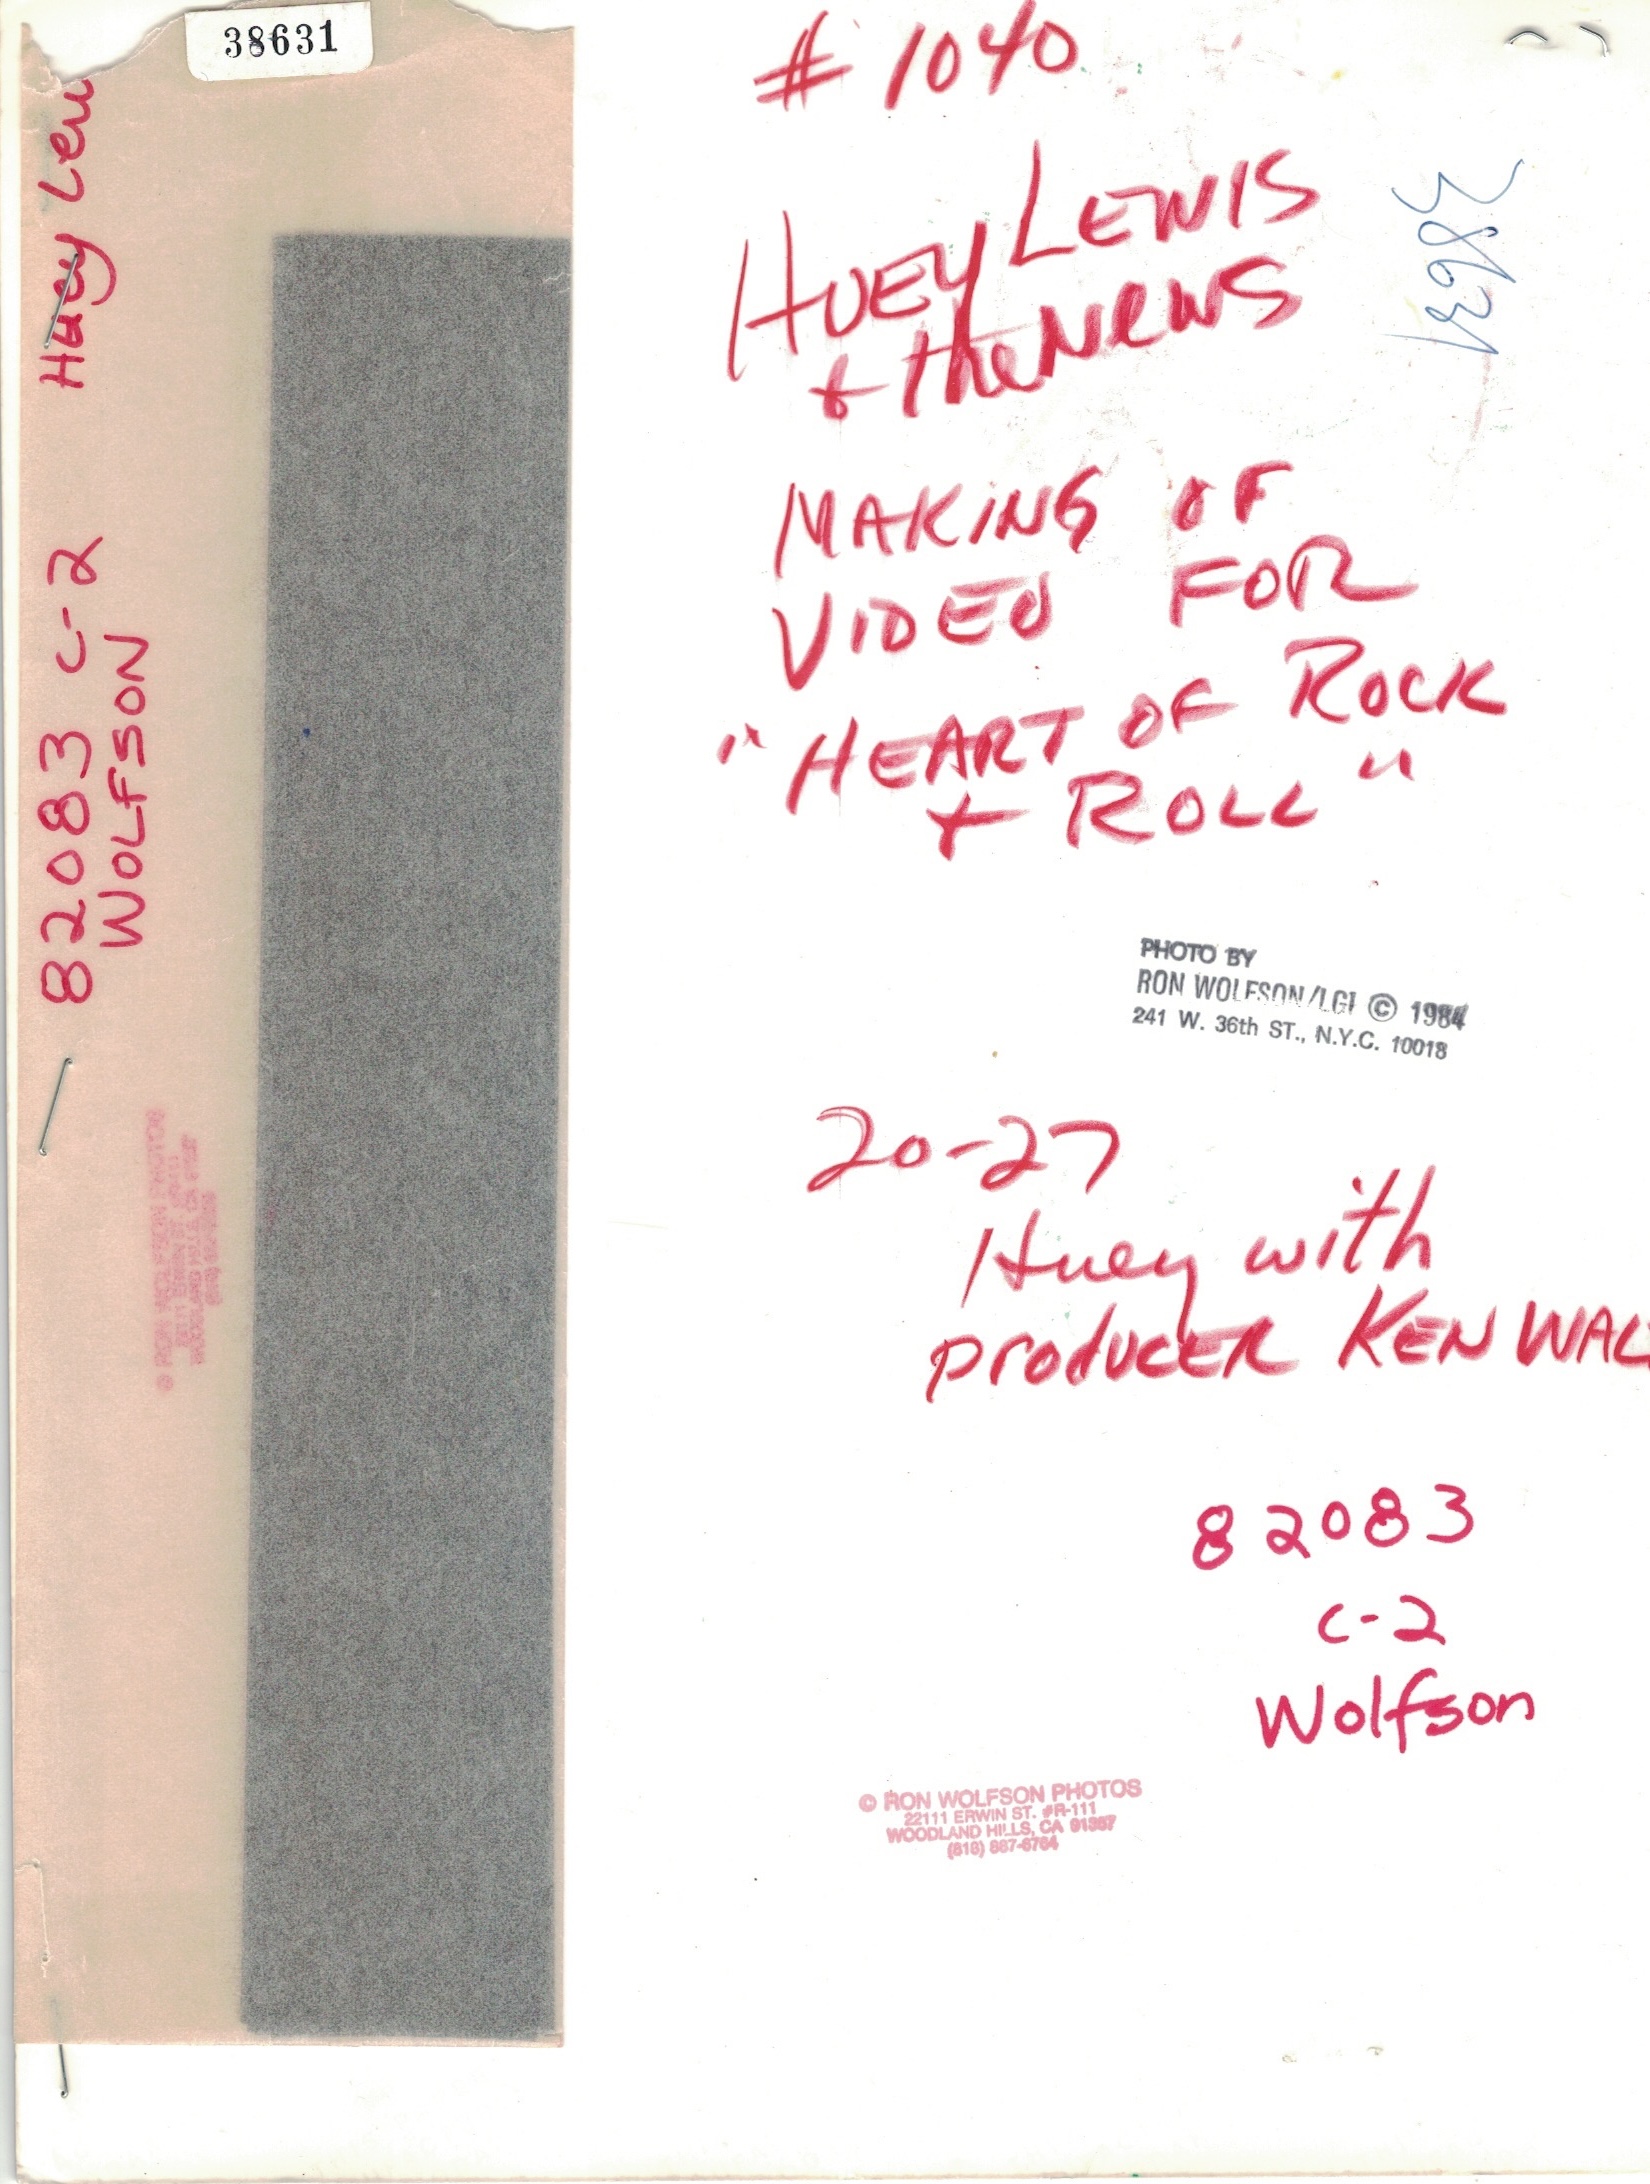 38631
Huey Lew
82083 C-2
WOLFSON
# 1040
HUEY LEWIS
& the NEWS
38631
MAKING OF
VIDEO FOR
"HEART OF ROCK
+ ROLL"
PHOTO BY
RON WOLFSON/LGI © 1984
241 W. 36th ST., N.Y.C. 10018
20-27
Huey with
producer KEN WAL
82083
C-2
Wolfson
© RON WOLFSON PHOTOS
22111 ERWIN ST. #R-111
WOODLAND HILLS, CA 91367
(818) 887-6764